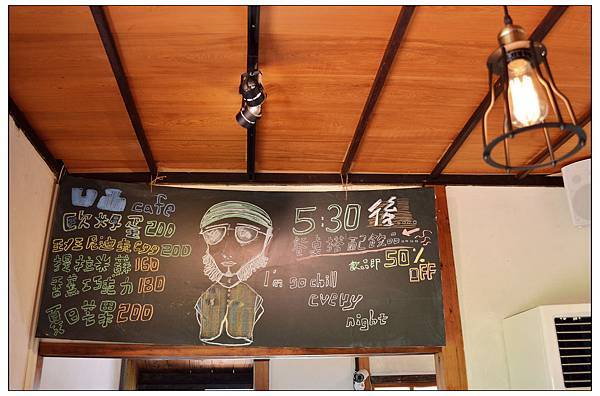 凹凸 cafe
歐姆蛋 200
200
提拉米蘇 160
香蕉巧克力 180
夏日芒果 200
5:30 後
餐桌搭配飲品....
飲品即 50% OFF
I'm so chill
every
night